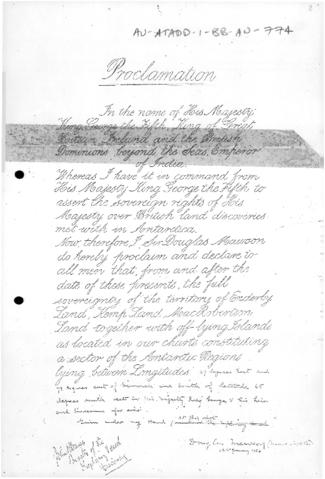 AU-ATADD-1-BB-AU-774
Proclamation
In the name of His Majesty
King George the Fifth King of Great
Britain Ireland and the British
Dominions beyond the Seas, Emperor
of India.
Whereas I have it in command from
His Majesty King George the Fifth to
assert the sovereign rights of His
Majesty over British land discoveries
met with in Antarctica.
Now, therefore, I Sir Douglas Mawson
do hereby proclaim and declare to
all men that, from and after the
date of these presents, the full
sovereignty of the territory of Enderby
Land, Kemp Land, MacRobertson
Land together with off-lying Islands
as located in our charts constituting
a sector of the Antarctic Regions
lying between Longitudes 47 degrees East and
73 degrees east of Greenwich and South of Latitude 65
degrees South vest in His Majesty King George V His Heirs
and Successors for ever.
Given under my Hand
at this spot
Douglas Mawson
John
Master of the
Exploring Vessel
Discovery